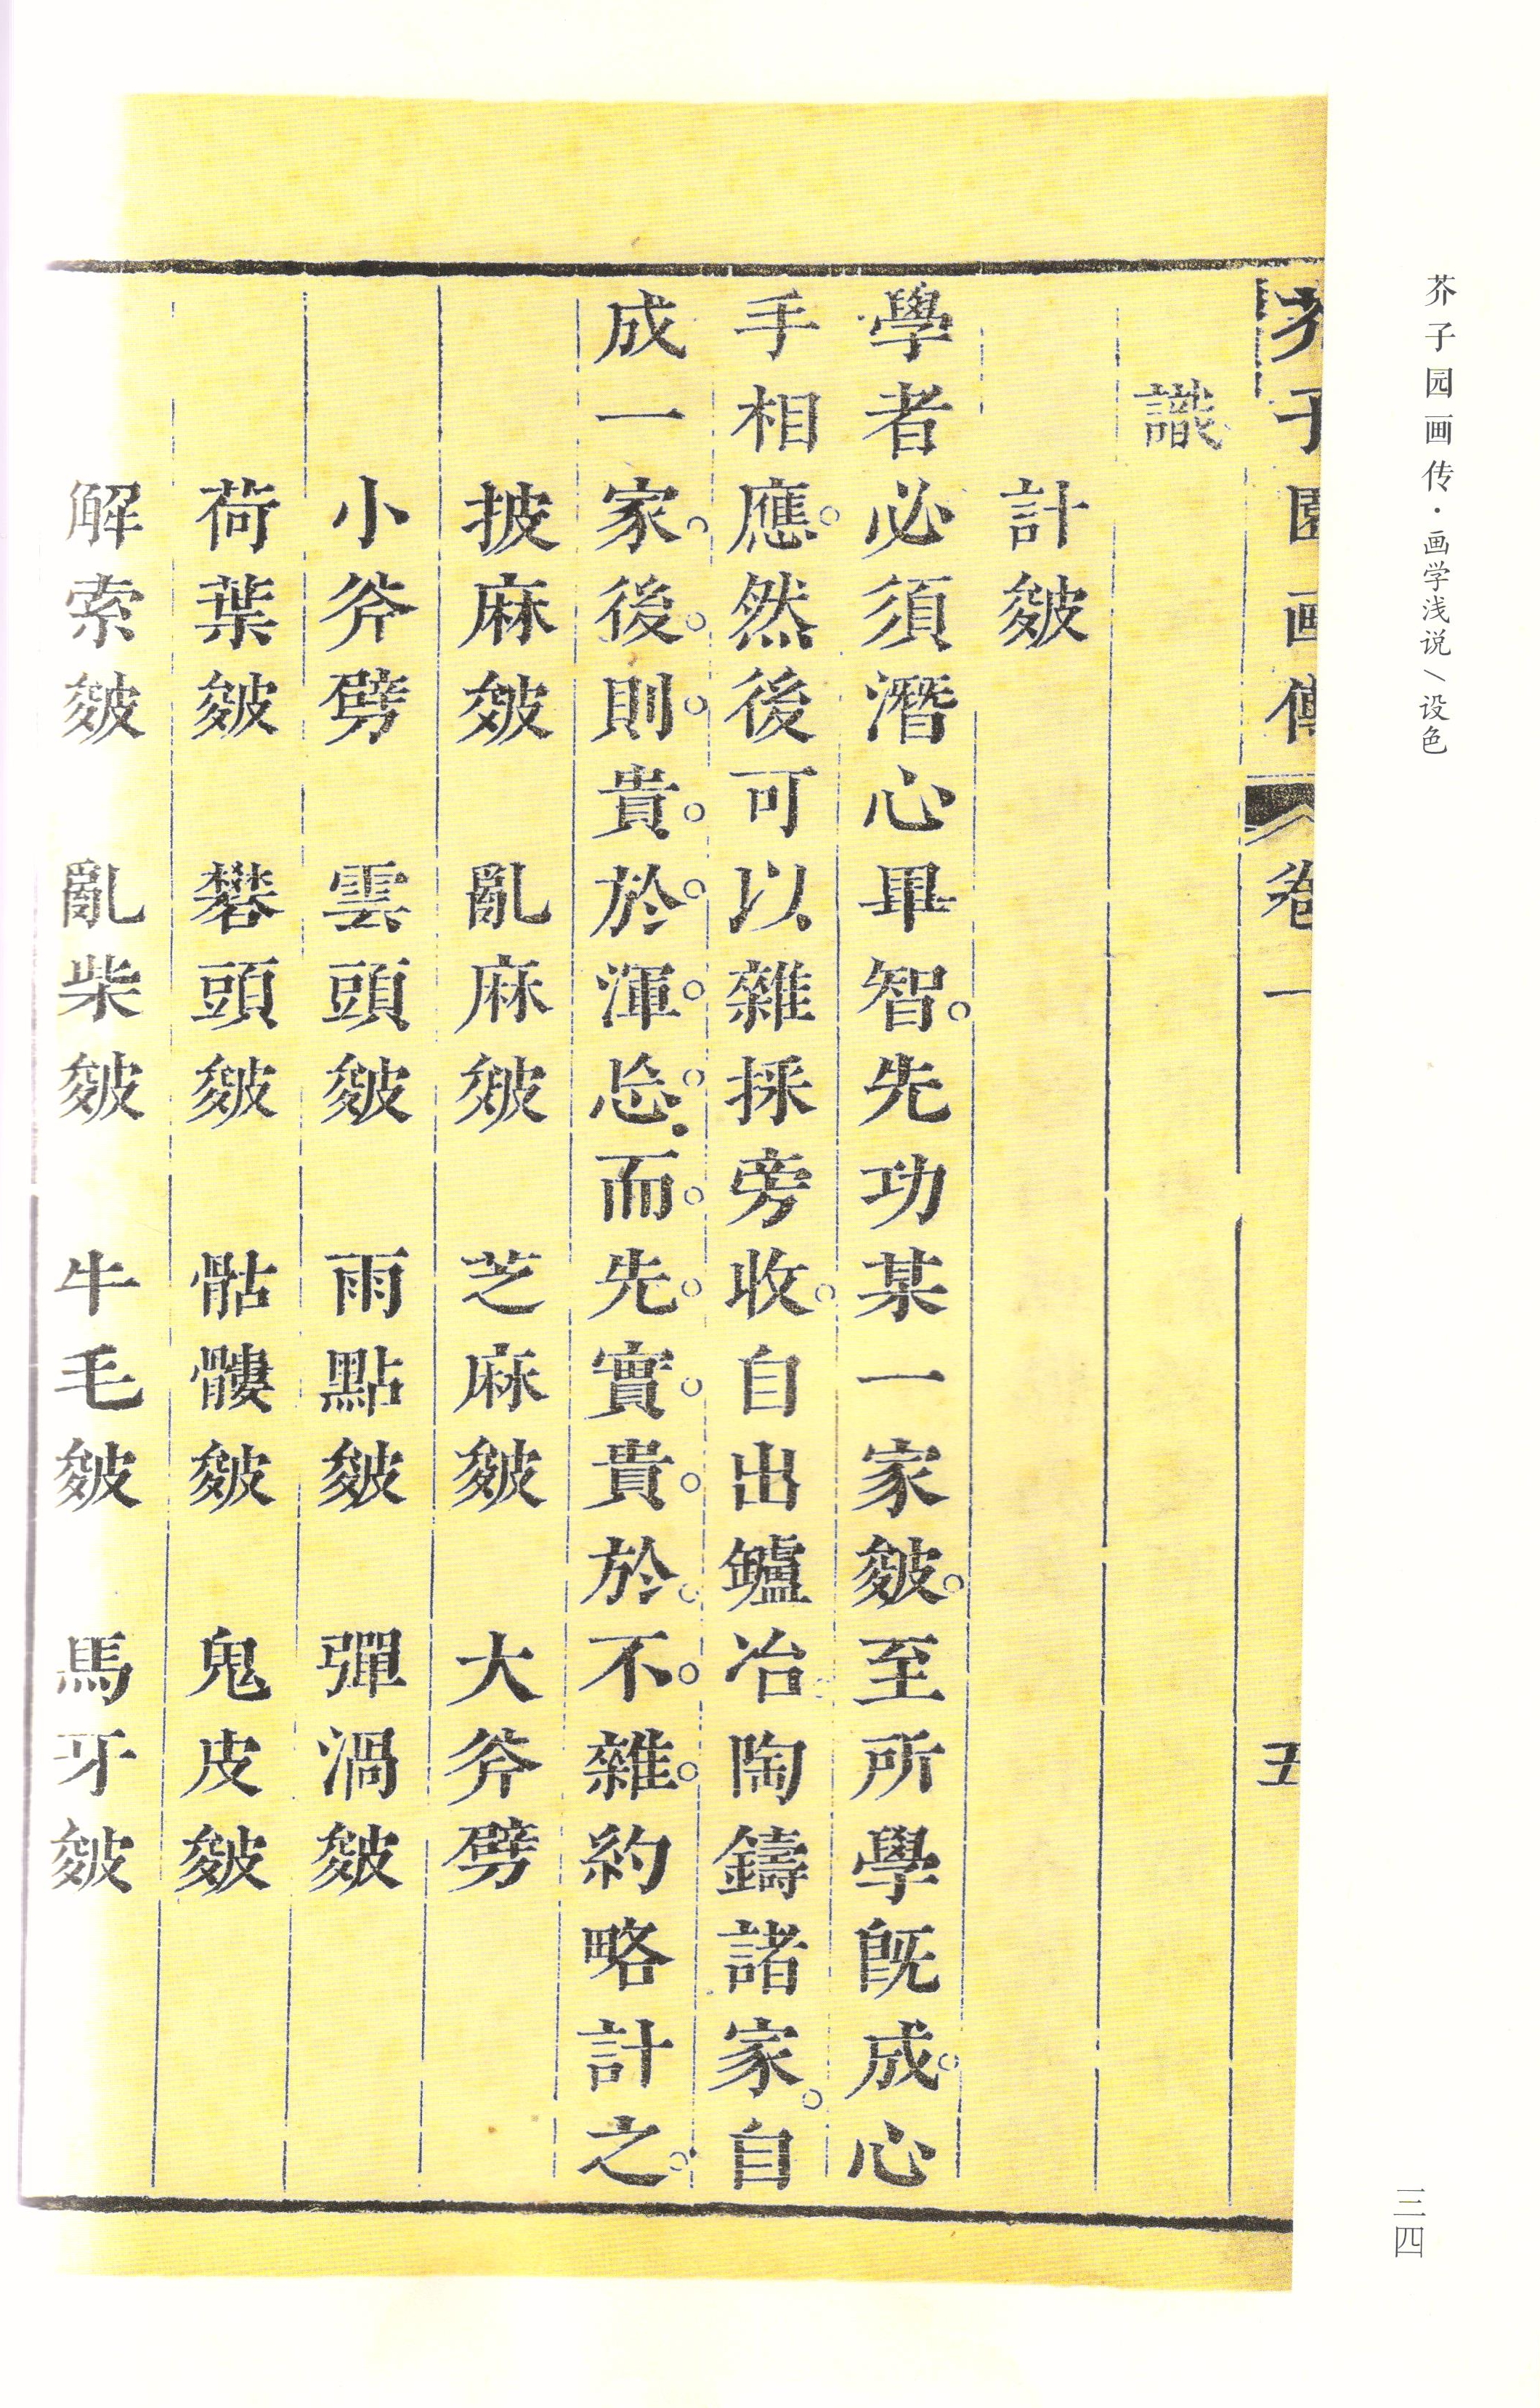 芥子园画传·画学浅说/设色
三四
芥子園画傳 卷一 五
識
計皴
學者必須潛心畢智。先功某一家皴。至所學既成。心
手相應。然後可以雜採旁收。自出鑪冶。陶鑄諸家。自
成一家。後。則。貴。於。渾。忘。而。先。實。貴。於。不。雜。約略計之。
披麻皴 亂麻皴 芝麻皴 大斧劈
小斧劈 雲頭皴 雨點皴 彈渦皴
荷葉皴 礬頭皴 骷髏皴 鬼皮皴
解索皴 亂柴皴 牛毛皴 馬牙皴